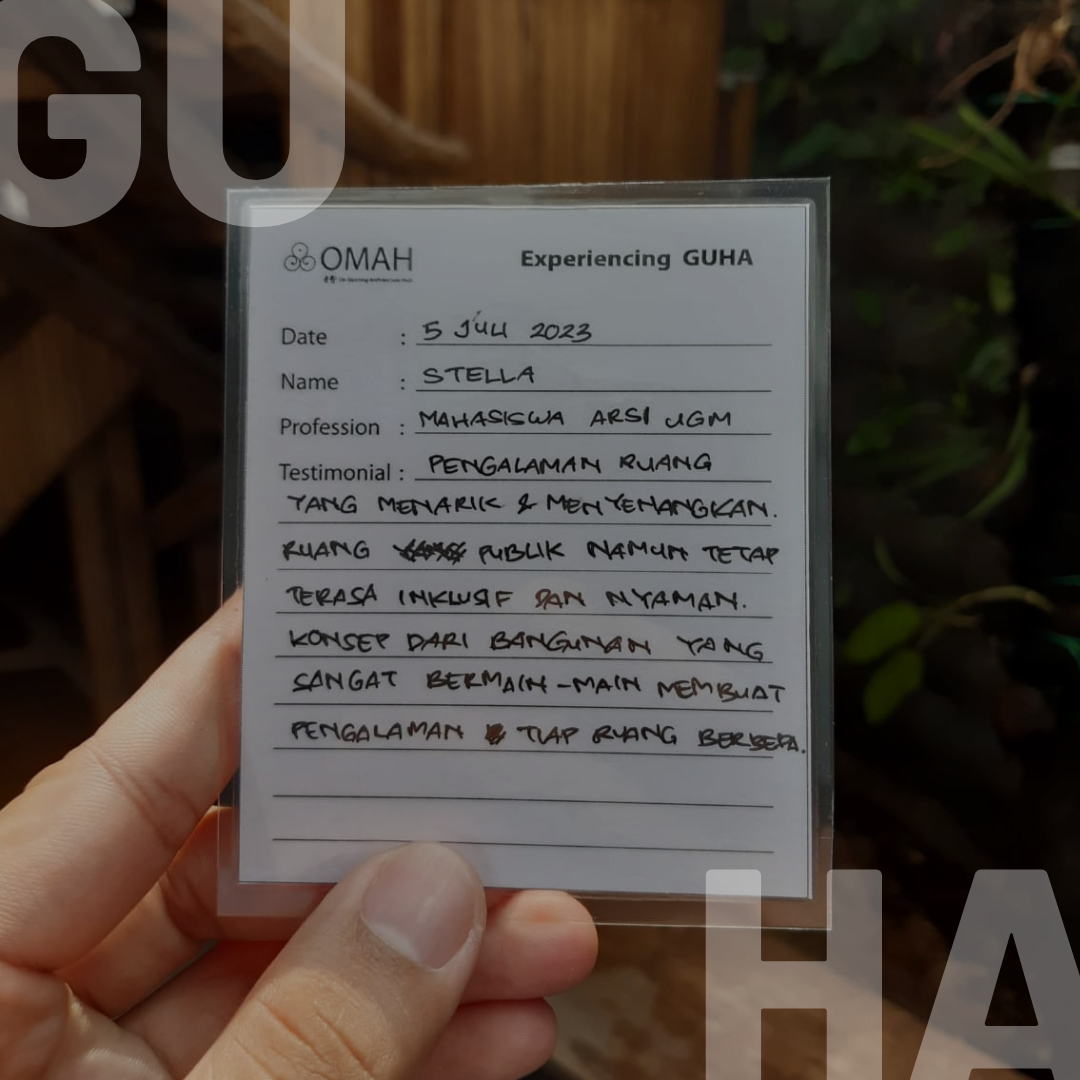 GU
OMAH
Experiencing GUHA
Date : 5 JULI 2023
Name : STELLA
Profession : MAHASISWA ARSI UGM
Testimonial : PENGALAMAN RUANG
YANG MENARIK & MENYENANGKAN.
RUANG PUBLIK NAMUN TETAP
TERASA INKLUSIF DAN NYAMAN.
KONSEP DARI BANGUNAN YANG
SANGAT BERMAIN-MAIN MEMBUAT
PENGALAMAN TIAP RUANG BERBEDA.
HA